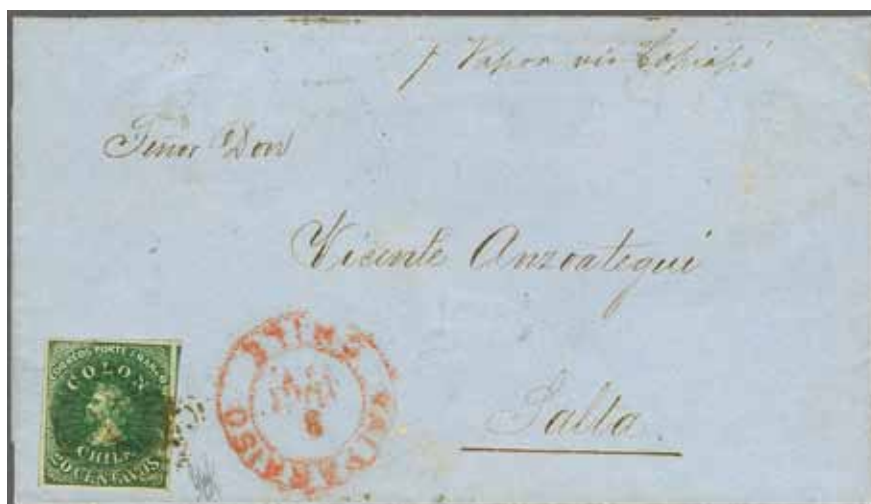 p Vapor via Copiapó
Señor Don
Vicente Anzoategui
Salta.
CORREOS PORTE FRANCO
COLON
CHILE
20 CENTAVOS
CHILE
VALPARAISO
8